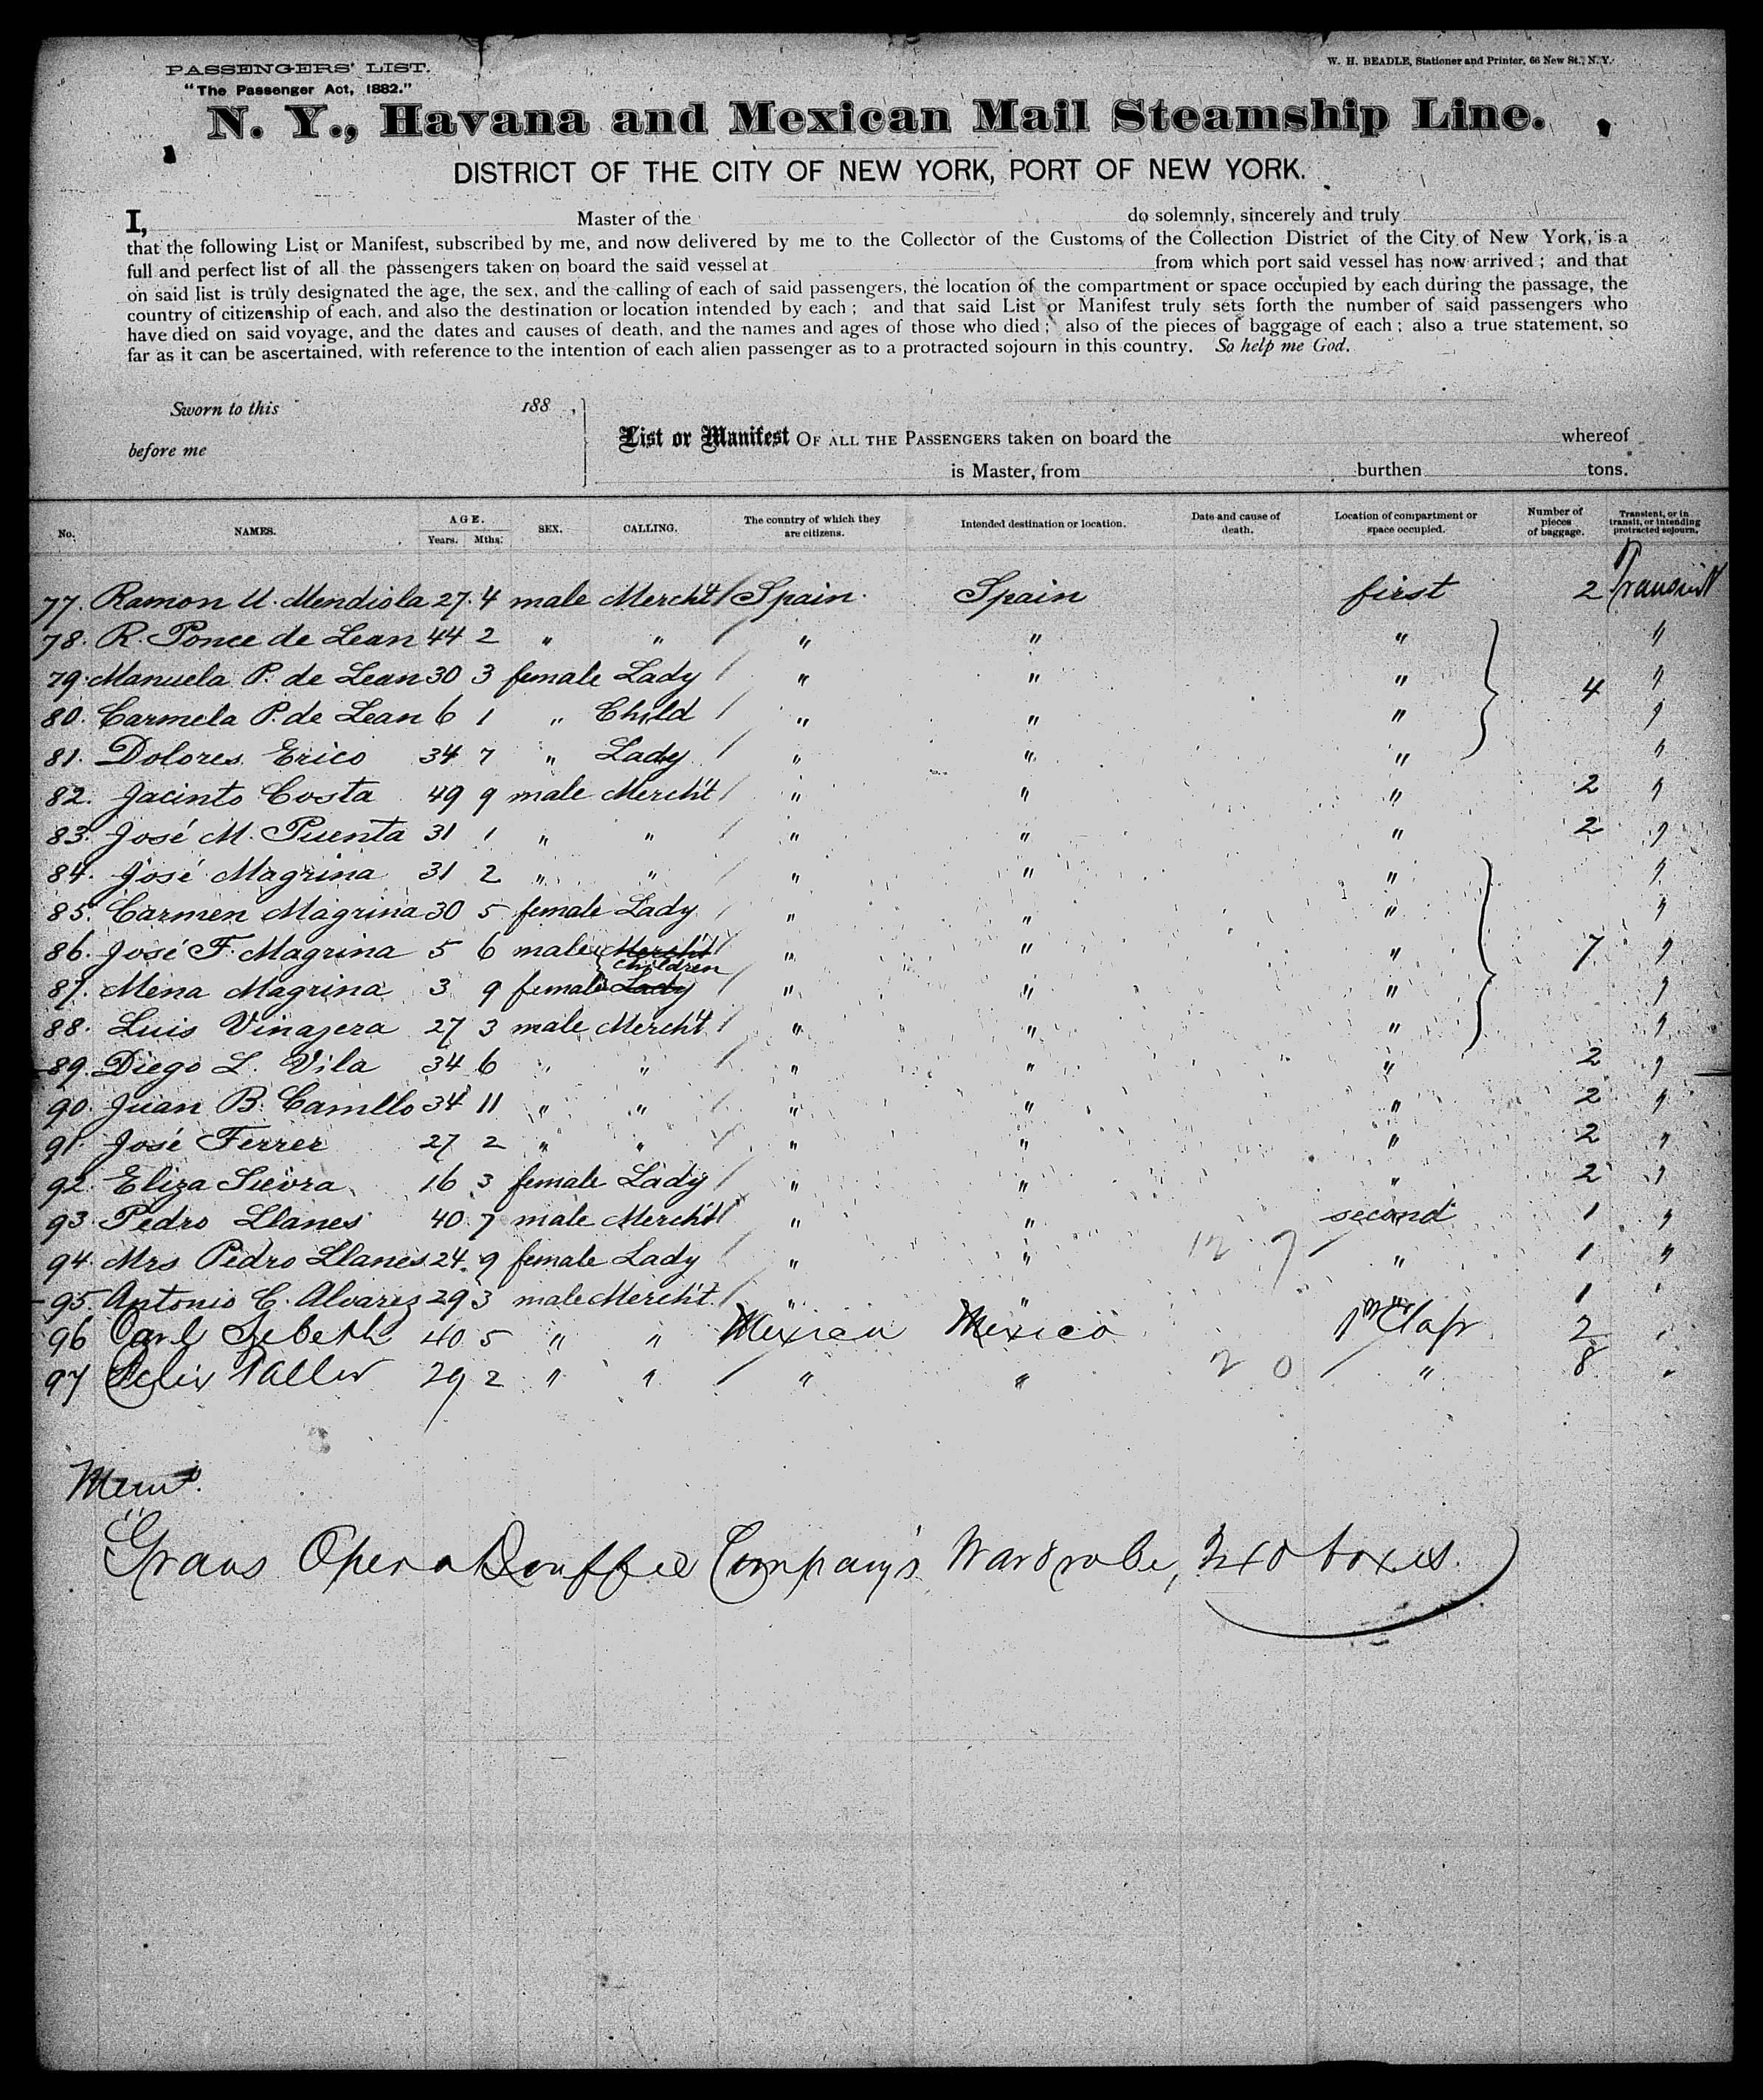 PASSENGERS' LIST.
W. H. BEADLE, Stationer and Printer, 66 New St., N. Y.
"The Passenger Act, 1882."
N. Y., Havana and Mexican Mail Steamship Line.
DISTRICT OF THE CITY OF NEW YORK, PORT OF NEW YORK.
I, Master of the do solemnly, sincerely and truly
that the following List or Manifest, subscribed by me, and now delivered by me to the Collector of the Customs of the Collection District of the City of New York, is a
full and perfect list of all the passengers taken on board the said vessel at from which port said vessel has now arrived; and that
on said list is truly designated the age, the sex, and the calling of each of said passengers, the location of the compartment or space occupied by each during the passage, the
country of citizenship of each, and also the destination or location intended by each; and that said List or Manifest truly sets forth the number of said passengers who
have died on said voyage, and the dates and causes of death, and the names and ages of those who died; also of the pieces of baggage of each; also a true statement, so
far as it can be ascertained, with reference to the intention of each alien passenger as to a protracted sojourn in this country. So help me God.
Sworn to this 188 ,
before me
List or Manifest OF ALL THE PASSENGERS taken on board the whereof
is Master, from burthen tons.
No. NAMES. AGE. Years. Mths. SEX. CALLING. The country of which they are citizens. Intended destination or location. Date and cause of death. Location of compartment or space occupied. Number of pieces of baggage. Transient, or in transit, or intending protracted sojourn.
77. Ramon U. Mendiola 27. 4 male Mercht Spain Spain first 2 Transient
78. R. Ponce de Lean 44 2 " " " " " "
79. Manuela P. de Lean 30 3 female Lady " " " 4 "
80. Carmela P. de Lean 6 1 " Child " " " "
81. Dolores Erico 34 7 " Lady " " " "
82. Jacinto Costa 49 9 male Mercht " " " 2 "
83. José M. Puenta 31 1 " " " " " 2 "
84. José Magrina 31 2 " " " " " "
85. Carmen Magrina 30 5 female Lady " " " "
86. José F. Magrina 5 6 male Mercht " " " 7 "
Children
87. Mena Magrina 3 9 female Lady " " " "
88. Luis Vinajera 27 3 male Mercht " " " "
89. Diego L. Vila 34 6 " " " " " 2 "
90. Juan B. Camllo 34 11 " " " " " 2 "
91 José Ferrer 27 2 " " " " " 2 "
92. Eliza 16 3 female Lady " " " 2 "
93 Pedro Llanes 40. 7 male Mercht " " second 1 "
94 Mrs Pedro Llanes 24. 9 female Lady " " 12 7 " 1 "
95. Antonio C. Alvarez 29 3 male Mercht. " " " 1 "
96 Carl 40 5 " " Mexico 2 "
97 Felix 29 2 " " " " 2 0 " 8 "
Memo.
Opera Bouffee Company's Wardrobe, boxes.